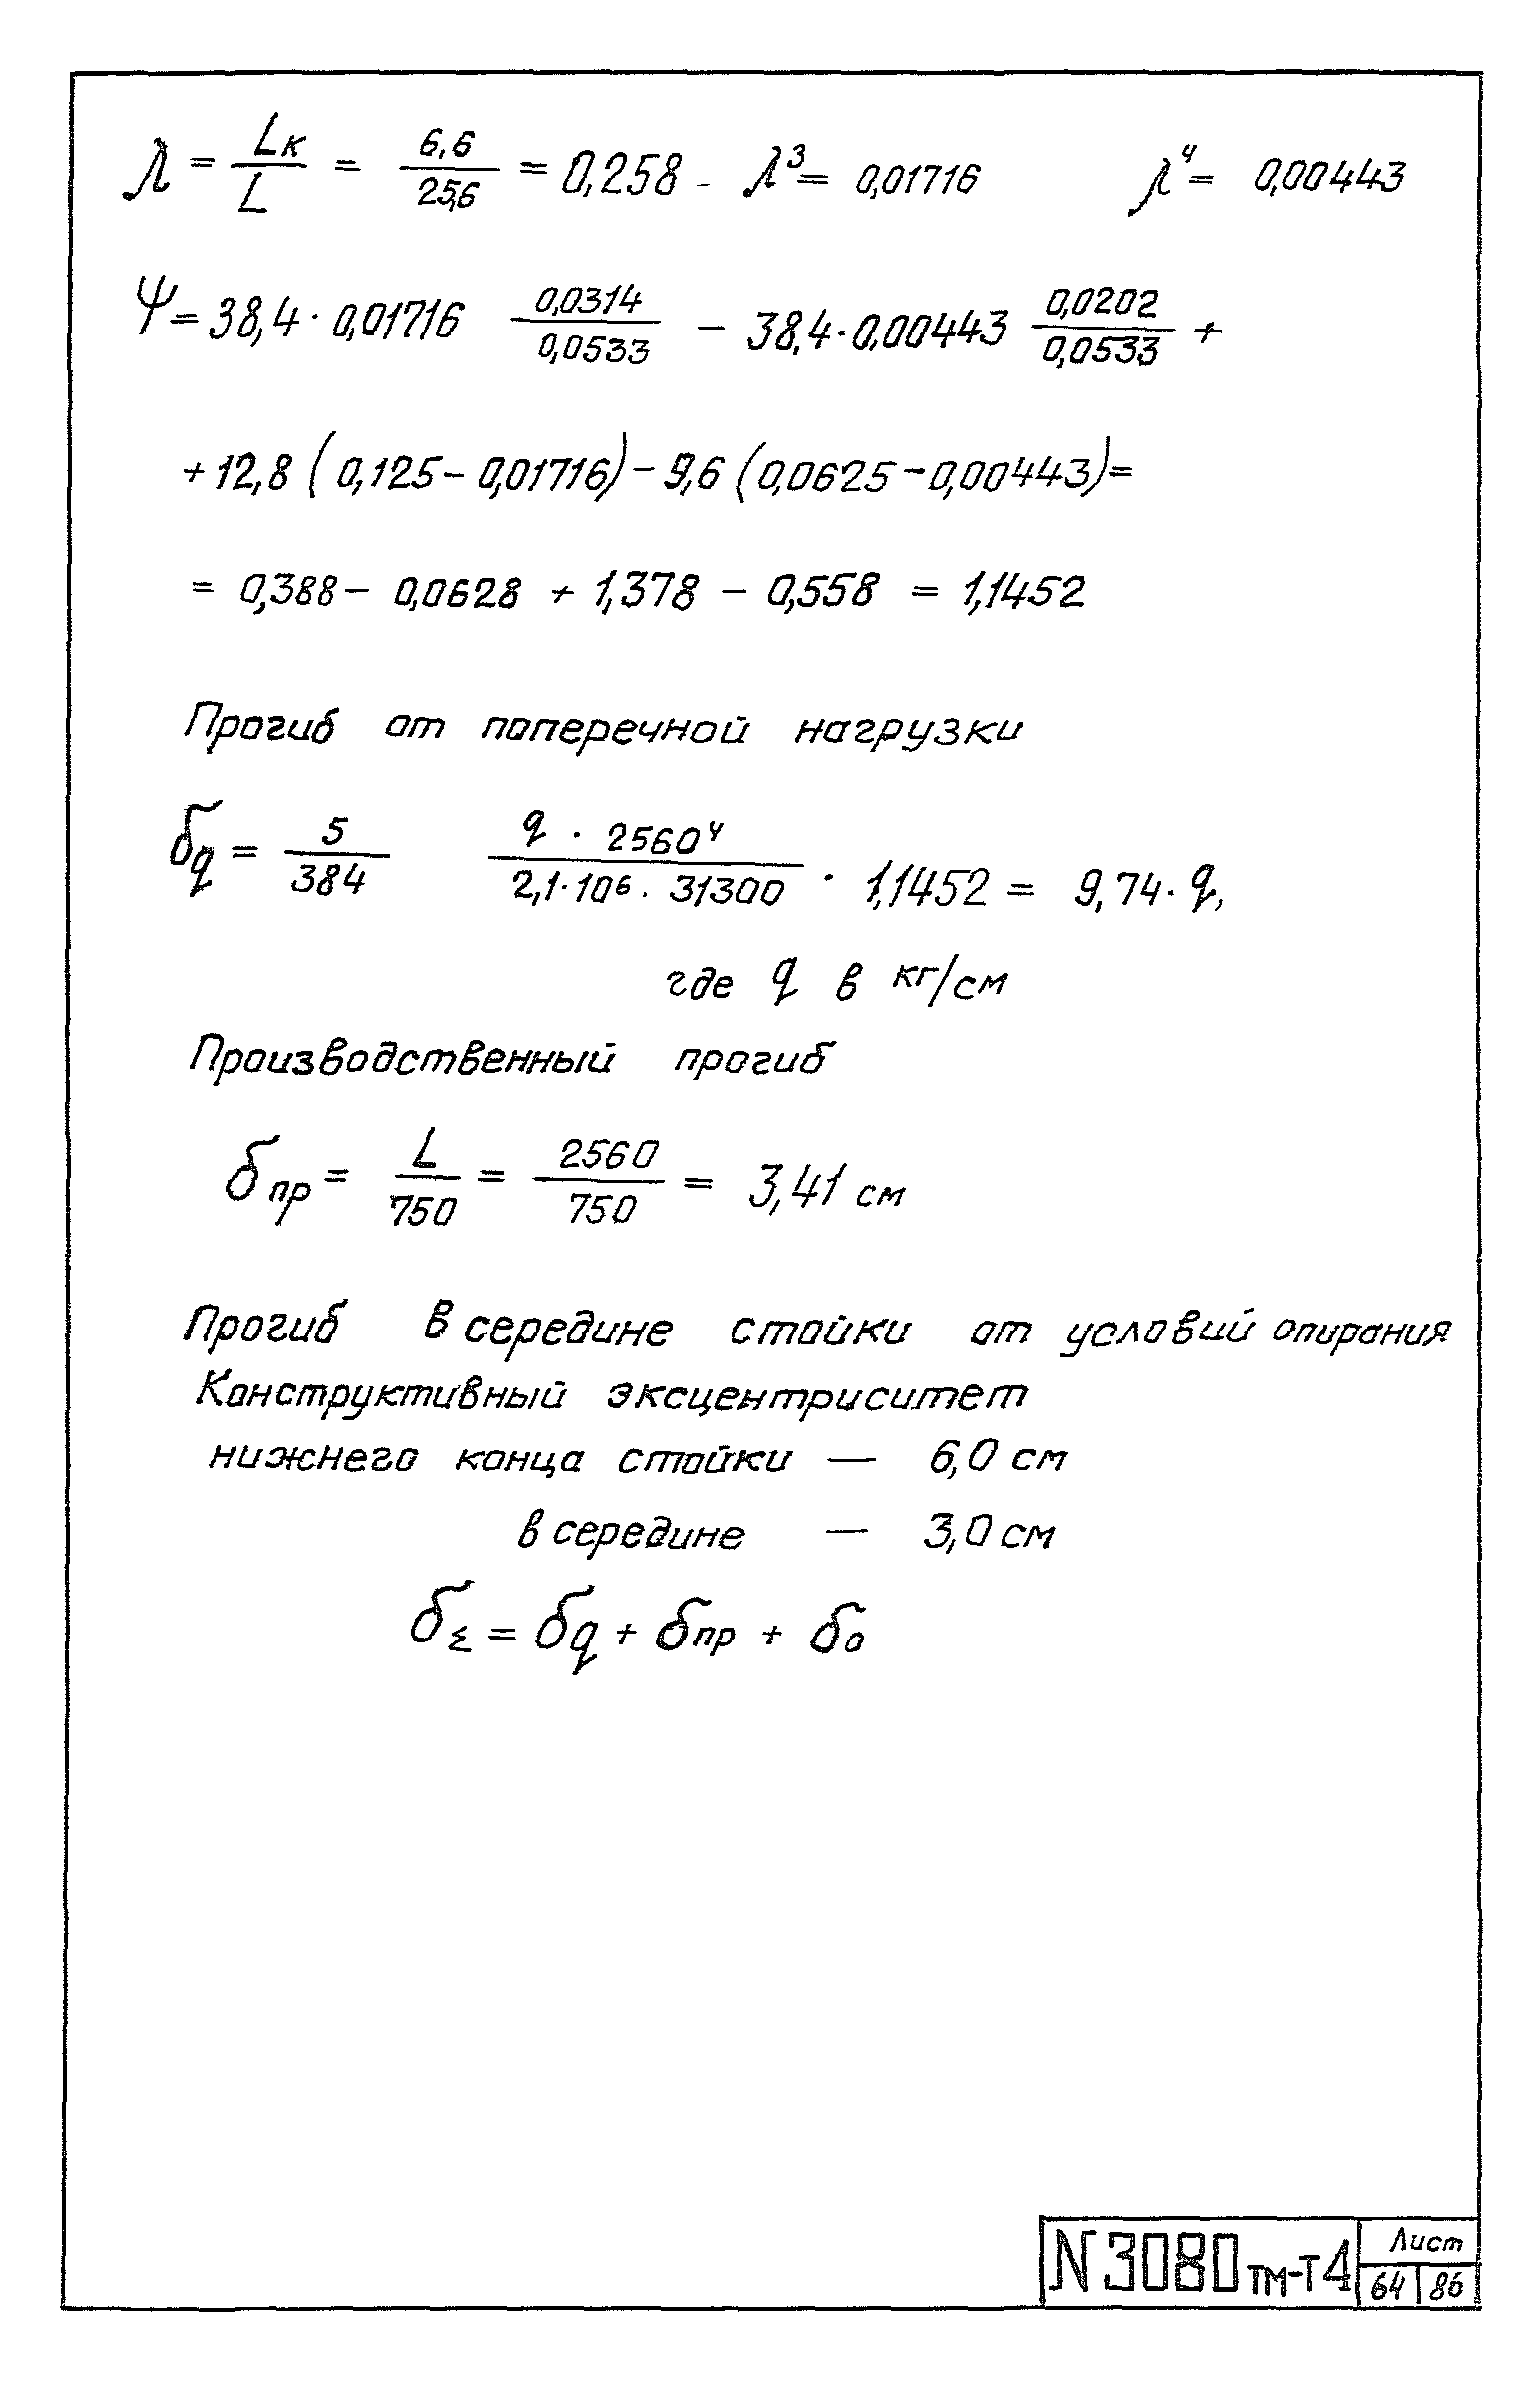 λ = Lк / L = 6,6 / 25,6 = 0,258 - λ³ = 0,01716 λ⁴ = 0,00443
Ψ = 38,4 · 0,01716 0,0314 / 0,0533 − 38,4 · 0,00443 0,0202 / 0,0533 +
+ 12,8 (0,125 − 0,01716) − 9,6 (0,0625 − 0,00443) =
= 0,388 − 0,0628 + 1,378 − 0,558 = 1,1452
Прогиб от поперечной нагрузки
δq = 5 / 384 q · 2560⁴ / 2,1·10⁶ · 31300 · 1,1452 = 9,74 · q,
где q в кг/см
Производственный прогиб
δпр = L / 750 = 2560 / 750 = 3,41 см
Прогиб в середине стойки от условий опирания
Конструктивный эксцентриситет
нижнего конца стойки — 6,0 см
в середине — 3,0 см
δΣ = δq + δпр + δо
N3080тм-т4
Лист
64 86